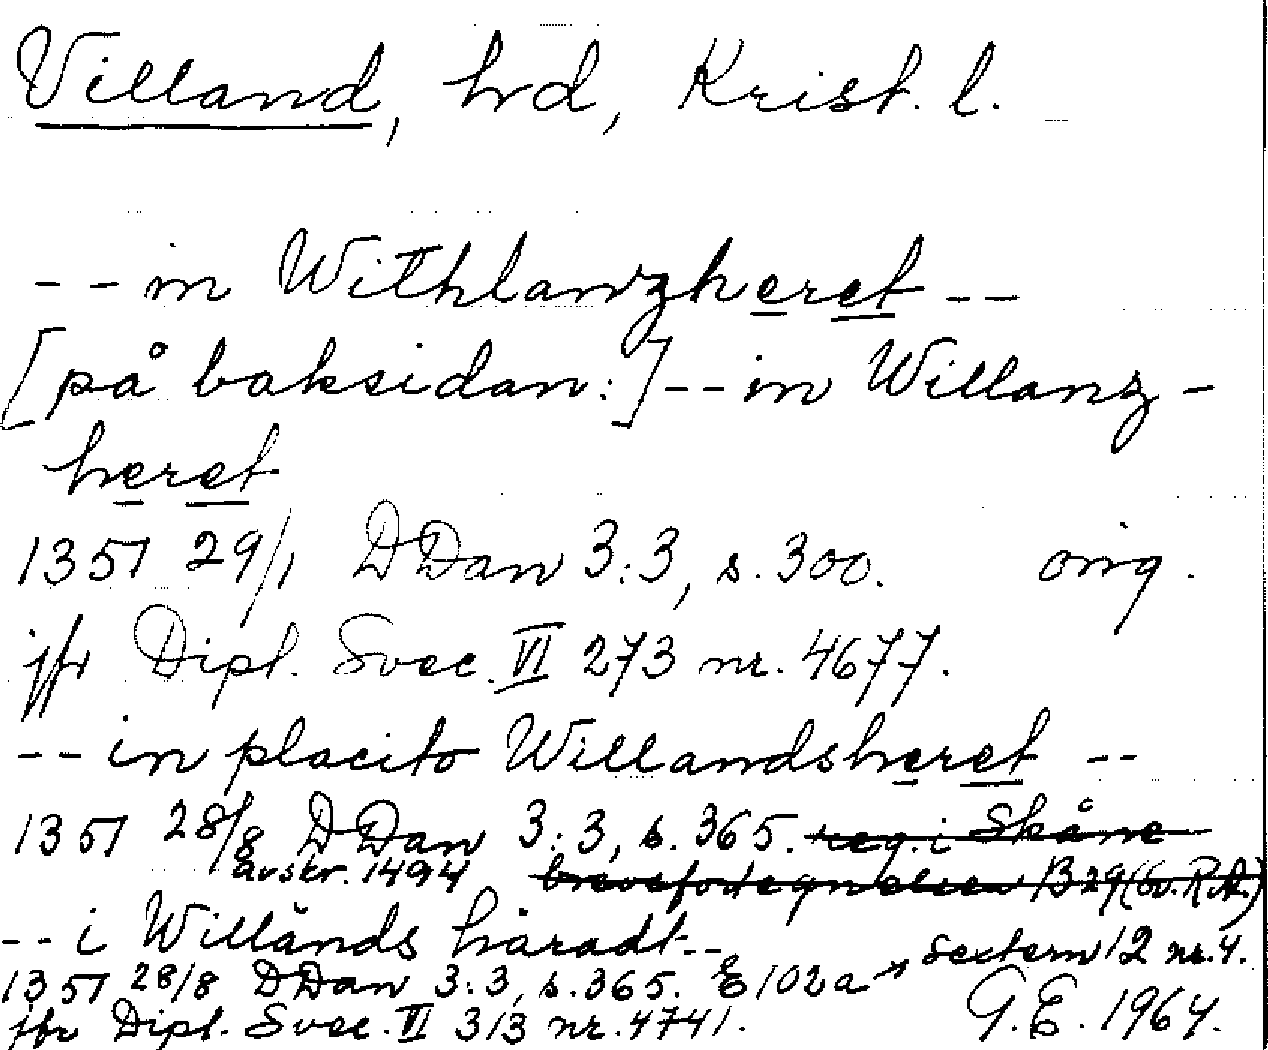 Villand, hrd, Krist. l.
-- in Withlanzheret --
[på baksidan:] -- in Willanz-
heret
1351 29/1 DDan 3:3, s. 300. orig.
jfr Dipl. Svec. VI 273 nr. 4677.
-- in placito Willandsheret --
1351 28/8 DDan 3:3, s. 365. reg. i Skåne
avskr. 1494 brevfördegnelsen B29 (Sv. R.A.)
-- i Willånds häradt --
1351 28/8 DDan 3:3, s. 365. E 102a → sextern 12 nr. 4.
jfr Dipl. Svec. VI 313 nr. 4741. G.E. 1964.